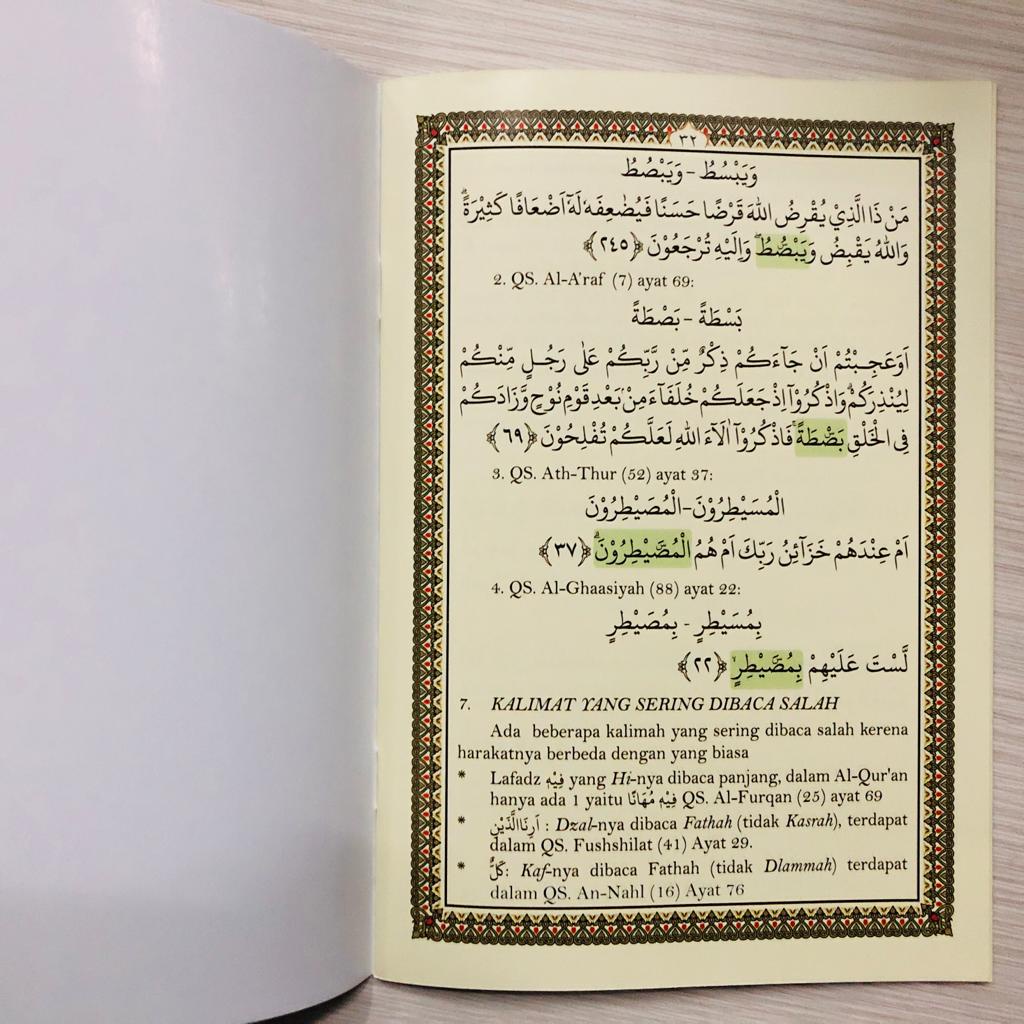 ٣٢
وَيَبْسُطُ - وَيَبْصُطُ
مَنْ ذَا الَّذِيْ يُقْرِضُ اللهَ قَرْضًا حَسَنًا فَيُضٰعِفَهٗ لَهٗٓ اَضْعَافًا كَثِيْرَةً ۗ
وَاللهُ يَقْبِضُ وَيَبْصُۣطُ ۖ وَاِلَيْهِ تُرْجَعُوْنَ ﴿٢٤٥﴾
2. QS. Al-A'raf (7) ayat 69:
بَسْطَةً - بَصْطَةً
اَوَعَجِبْتُمْ اَنْ جَآءَكُمْ ذِكْرٌ مِّنْ رَّبِّكُمْ عَلٰى رَجُلٍ مِّنْكُمْ
لِيُنْذِرَكُمْ ۗ وَاذْكُرُوْٓا اِذْ جَعَلَكُمْ خُلَفَآءَ مِنْۢ بَعْدِ قَوْمِ نُوْحٍ وَّزَادَكُمْ
فِى الْخَلْقِ بَصْۣطَةً ۚ فَاذْكُرُوْٓا اٰلَآءَ اللهِ لَعَلَّكُمْ تُفْلِحُوْنَ ﴿٦٩﴾
3. QS. Ath-Thur (52) ayat 37:
الْمُسَيْطِرُوْنَ-الْمُصَيْطِرُوْنَ
اَمْ عِنْدَهُمْ خَزَآئِنُ رَبِّكَ اَمْ هُمُ الْمُصَۣيْطِرُوْنَ ۗ ﴿٣٧﴾
4. QS. Al-Ghaasiyah (88) ayat 22:
بِمُسَيْطِرٍ - بِمُصَيْطِرٍ
لَّسْتَ عَلَيْهِمْ بِمُصَۣيْطِرٍۙ ﴿٢٢﴾
7. KALIMAT YANG SERING DIBACA SALAH
Ada beberapa kalimah yang sering dibaca salah kerena
harakatnya berbeda dengan yang biasa
* Lafadz فِيْهٖ yang Hi-nya dibaca panjang, dalam Al-Qur'an
hanya ada 1 yaitu فِيْهٖ مُهَانًا QS. Al-Furqan (25) ayat 69
* اَرِنَاالَّذَيْنِ : Dzal-nya dibaca Fathah (tidak Kasrah), terdapat
dalam QS. Fushshilat (41) Ayat 29.
* كَلٌّ: Kaf-nya dibaca Fathah (tidak Dlammah) terdapat
dalam QS. An-Nahl (16) Ayat 76